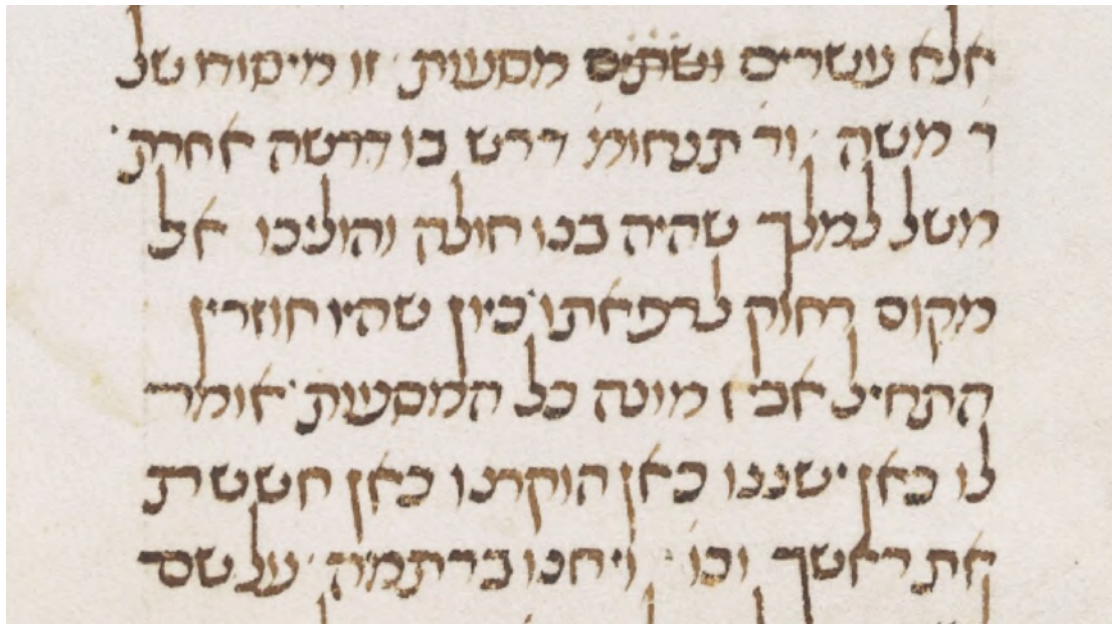 אלא עשרים ושתים מסעות זו מיסוח של
ר משה ור תנחומ דרש בו דרשה אחרת
משל למלך שהיה בנו חולה והוליכו אל
מקום רחוק לרפאתו כיון שהיו חוזרין
התחיל אביו מונה כל המסעות אומר
לו כאן ישננו כאן הוקרנו כאן חששת
את ראשך וכו ויחנו ברתמה על שם